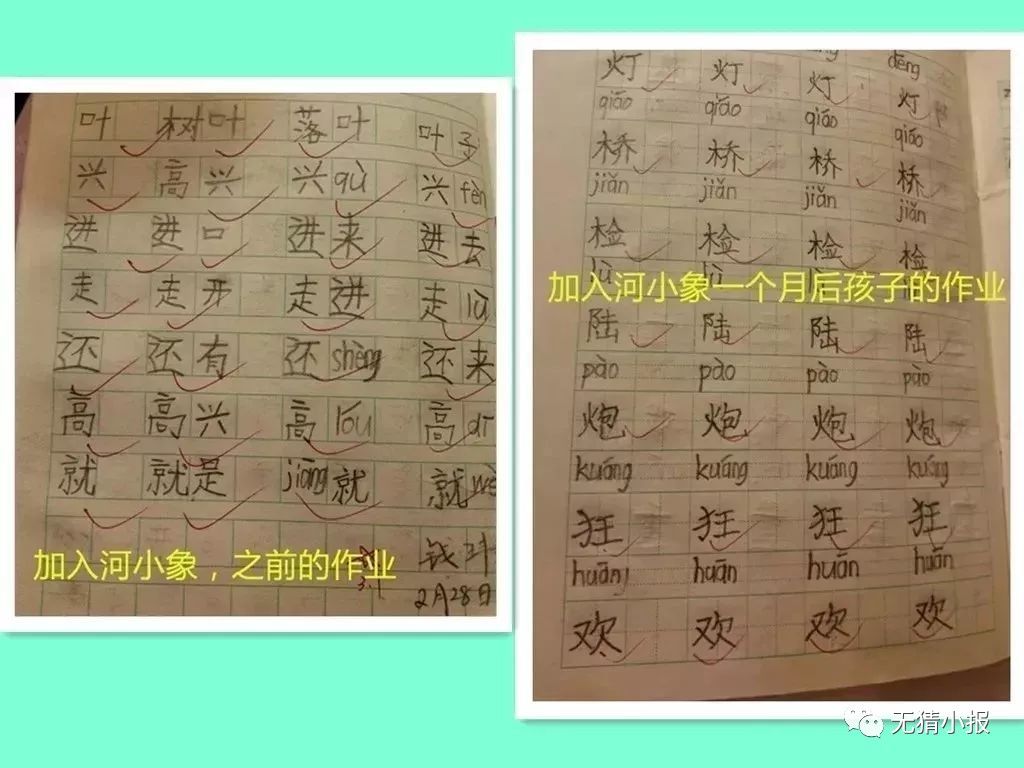 叶 树叶 落叶 叶子
兴 高兴 兴qù 兴fèn
进 进口 进来 进去
走 走开 走进 走lù
还 还有 还shèng 还来
高 高兴 高lóu 高dī
就 就是 jiāng就 就
加入河小象，之前的作业
2月28日
dēng
灯 灯 灯 灯
qiáo qiáo qiáo qiáo
桥 桥 桥 桥
jiǎn jiǎn jiǎn jiǎn
检 检 检 检
加入河小象一个月后孩子的作业
陆 陆 陆 陆
pào pào pào pào
炮 炮 炮 炮
kuáng kuáng kuáng kuáng
狂 狂 狂 狂
huānj huān huān huān
欢 欢 欢 欢
无猜小报